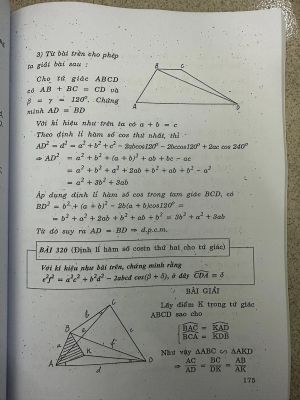 3) Từ bài trên cho phép
ta giải bài sau :
Cho tứ giác ABCD
có AB + BC = CD và
β = γ = 120°. Chứng
minh AD = BD
B
C
A
D
Với kí hiệu như trên ta có a + b = c
Theo định lí hàm số cos thứ nhất, thì
AD² = d² = a² + b² + c² - 2abcos120° - 2bccos120° + 2ac cos 240°
⇒ AD² = a² + b² + (a + b)² + ab + bc - ac
= a² + b² + a² + 2ab + b² + ab + b² - a²
= a² + 3b² + 3ab
Áp dụng định lí hàm số cos trong tam giác BCD, có
BD² = b² + (a + b)² - 2b(a + b)cos120° =
= b² + a² + 2ab + b² + ab + b² = 3b² + a² + 3ab
Từ đó suy ra AD = BD ⇒ d.p.c.m.
BÀI 320 (Định lí hàm số cosin thứ hai cho tứ giác)
Với kí hiệu như bài trên, chứng minh rằng
e²f² = a²c² + b²d² - 2abcd cos(β + δ), ở đây CDA = δ
BÀI GIẢI
Lấy điểm K trong tứ giác
ABCD sao cho
BAC = KAD
BCA = KDB
Như vậy ΔABC ∽ ΔAKD
⇒ AC/AD = BC/DK = AB/AK
C
B
b
e
c
a
f
K
A
d
D
175